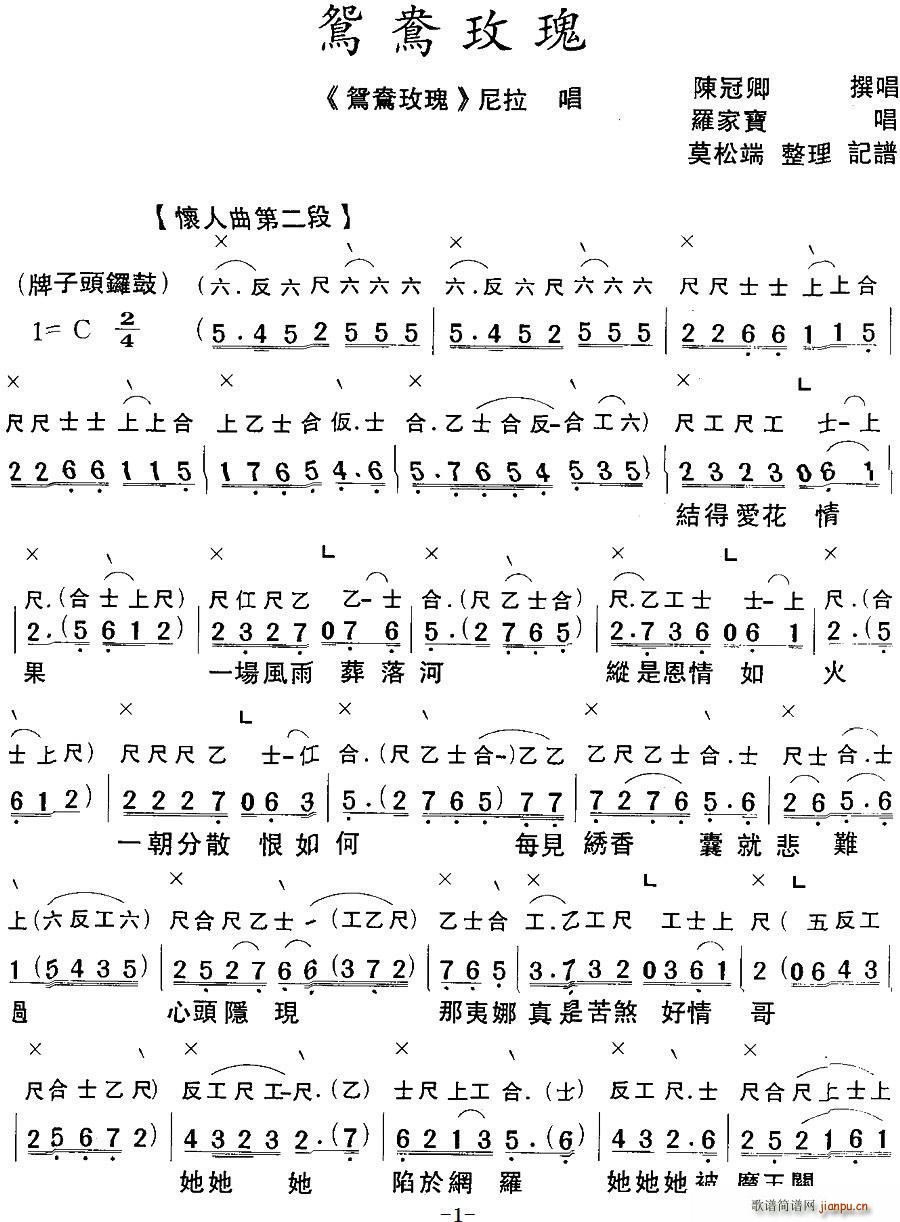 鴛鴦玫瑰
《鴛鴦玫瑰》尼拉 唱
陳冠卿 撰唱
羅家寶 唱
莫松端 整理 記譜
【懷人曲第二段】
× ﹨ × ﹨ × ﹨
(牌子頭鑼鼓) (六.反六尺六六六 六.反六尺六六六 尺尺士士上上合
1=C 2/4 (5.452 555 | 5.452 555 | 2266 115 |
× ﹨ × ﹨ × ∟
尺尺士士上上合 上乙士合仮.士 合.乙士合反-合工六) 尺工尺工 士-上
2266 115 | 1765 4.6 | 5.7654 535) | 2323 06 1 |
結得愛花 情
× ﹨ × ∟ × ﹨ × ∟ ×
尺.(合士上尺) 尺仜尺乙 乙-士 合.(尺乙士合) 尺.乙工士 士-上 尺.(合
2.(5 612) | 2327 07 6 | 5.(2 765) | 2.736 06 1 | 2.(5
果 一場風雨 葬落河 縱是恩情 如 火
﹨ × ∟ × ﹨ × ﹨ ×
士上尺) 尺尺尺乙 士-仜 合.(尺乙士合-)乙乙 乙尺乙士合.士 尺士合.士
612) | 2227 06 3 | 5.(2 765) 77 | 7276 5.6 | 26 5.6
一朝分散 恨如何 每見 綉香 囊就悲 難
﹨ × ﹨ × ﹨ × ∟ × ∟
上(六反工六) 尺合尺乙士-(工乙尺) 乙士合 工.乙工尺 工士上 尺(五反工
1(5435) | 25276 6(372) | 765 | 3.732 0361 | 2(0643
過 心頭隱 現 那夷娜 真是苦煞 好情 哥
× ﹨ × ﹨ × ﹨ × ﹨ ×
尺合士乙尺) 反工尺工-尺.(乙) 士尺上工合.(士) 反工尺.士 尺合尺上士上
25672) | 43232.(7) | 62135.(6) | 432.6 | 252161
她她 她 陷於網 羅 她她她被 魔王關
-1-
歌谱简谱网
jianpu.cn